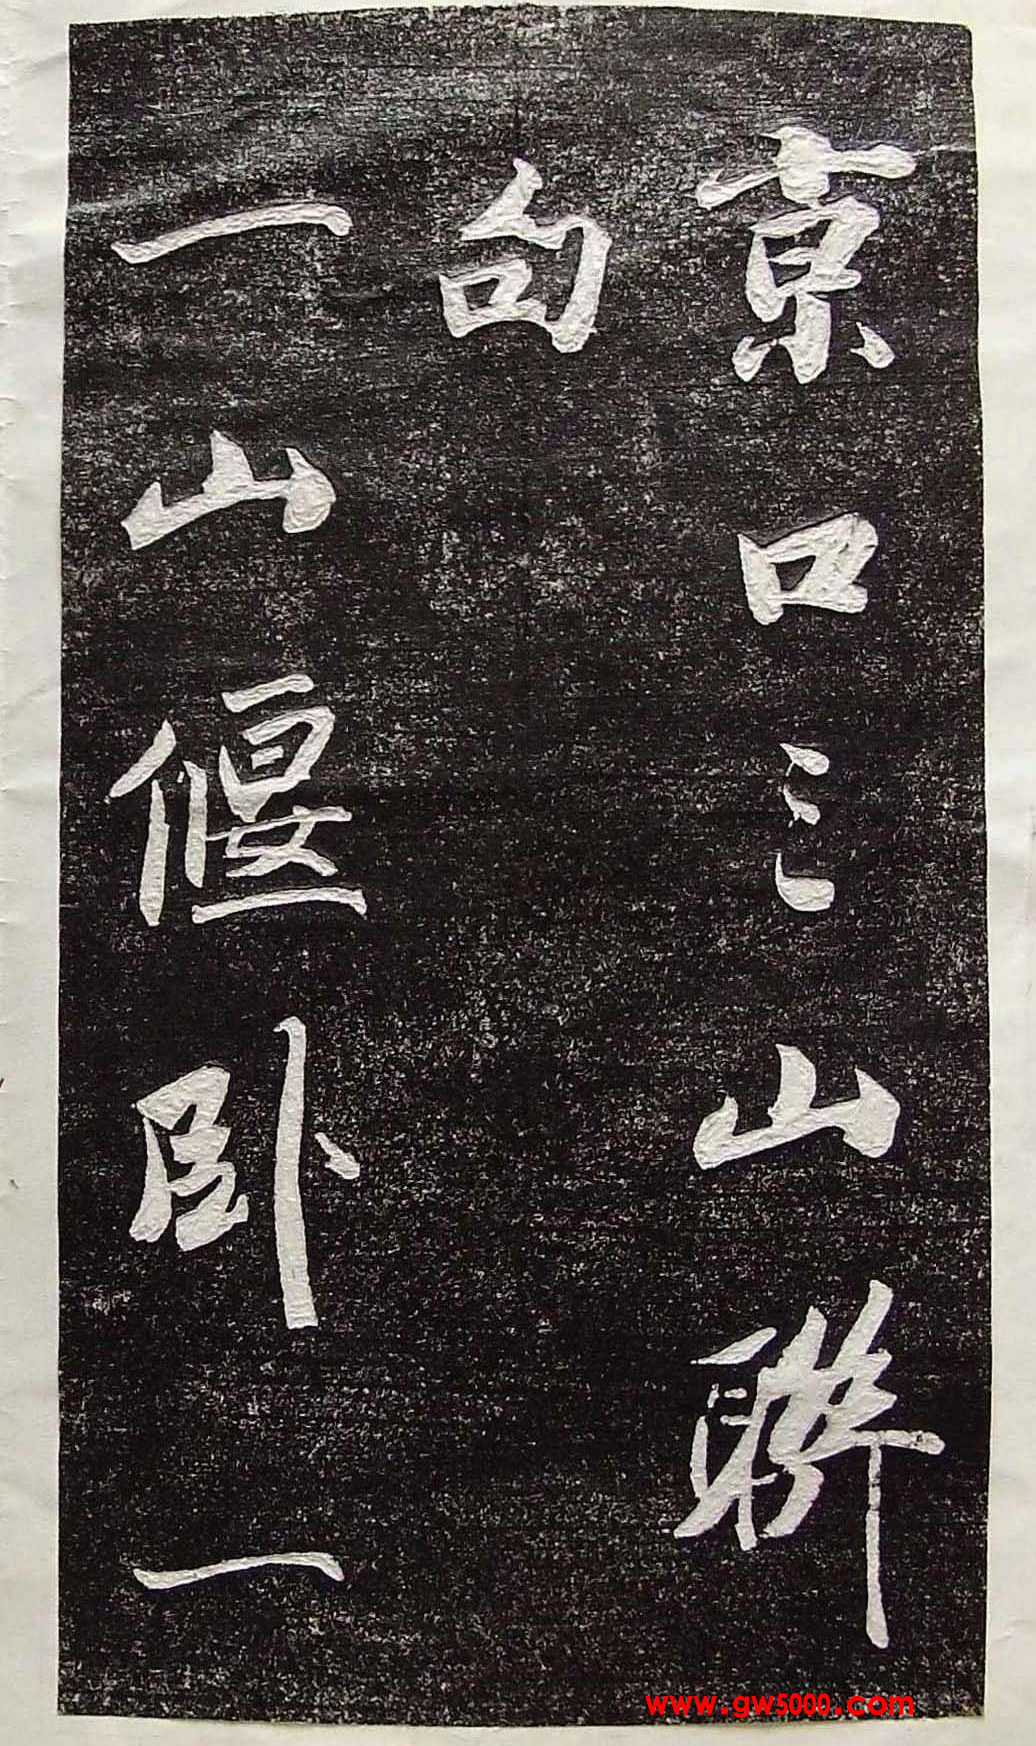 京口三山聯
句
一山偃卧一
www.gw5000.com